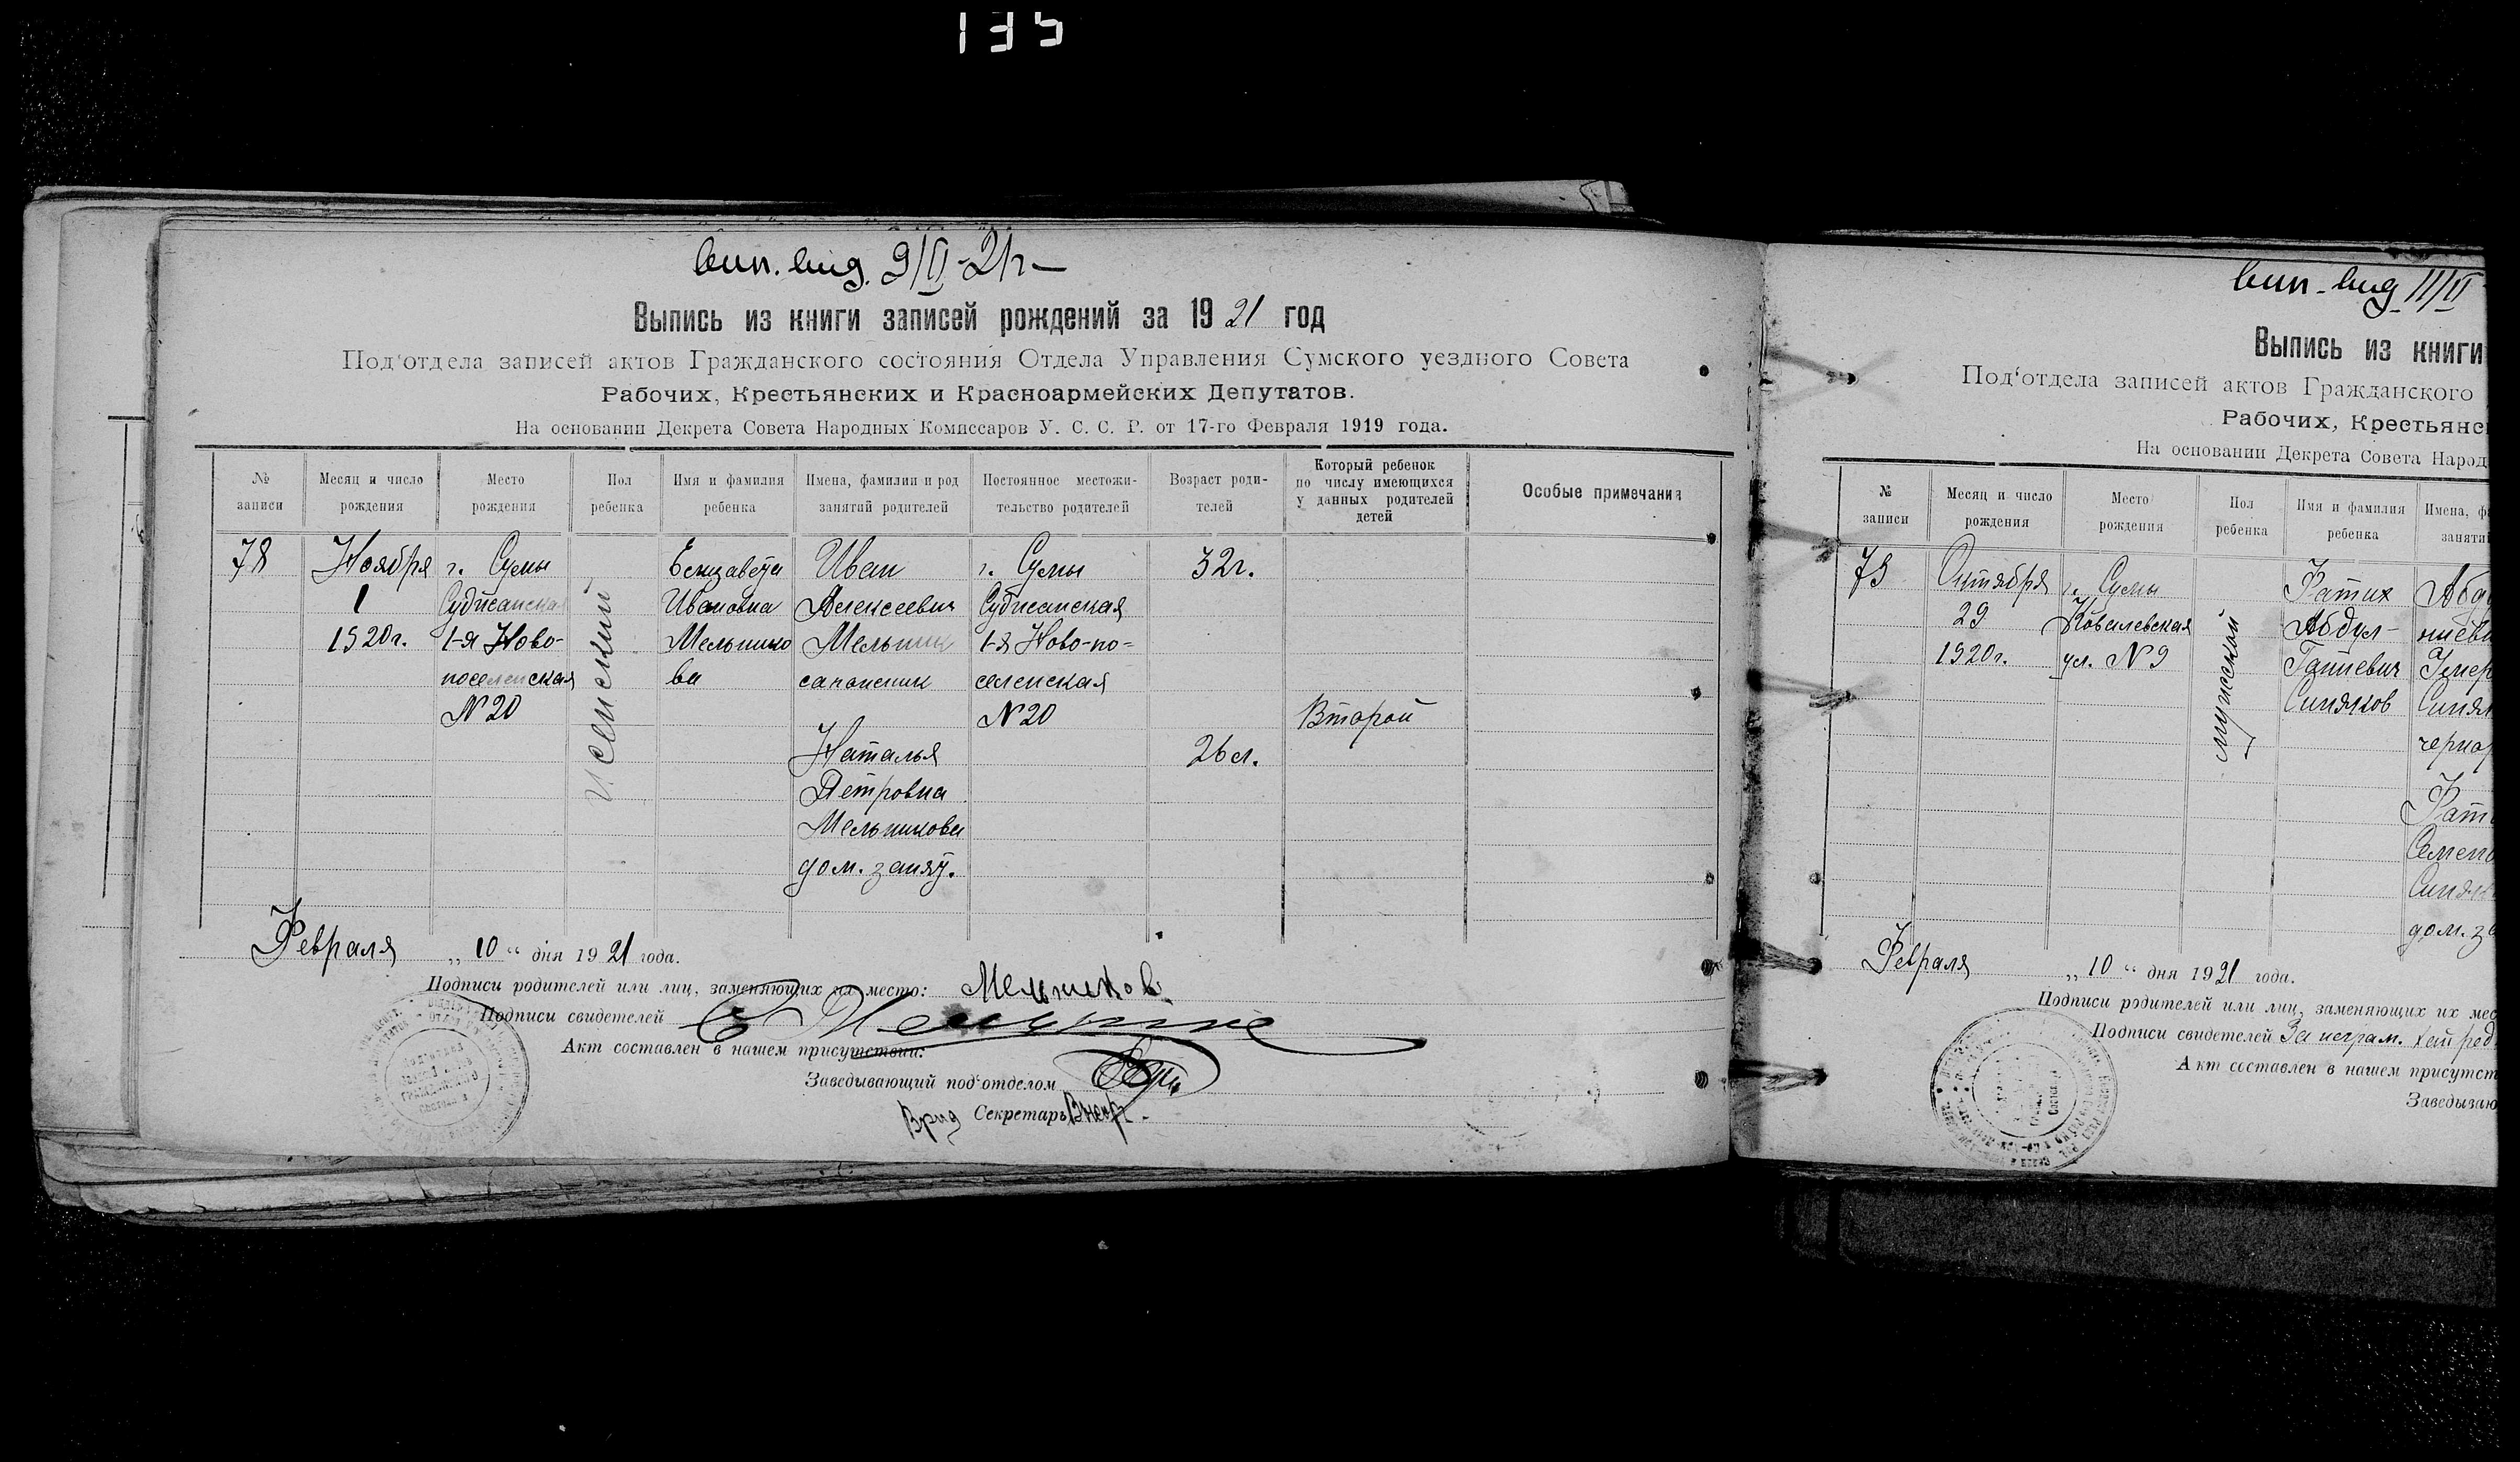 135
вып. выд. 9/II-21г
Выпись из книги записей рождений за 1921 год
Под‘отдела записей актов Гражданского состояния Отдела Управления Сумского уездного Совета
Рабочих, Крестьянских и Красноармейских Депутатов.
На основании Декрета Совета Народных Комиссаров У. С. С. Р. от 17-го Февраля 1919 года.
№ записи
Месяц и число рождения
Место рождения
Пол ребенка
Имя и фамилия ребенка
Имена, фамилии и род занятий родителей
Постоянное местожи-
тельство родителей
Возраст роди-
телей
Который ребенок
по числу имеющихся
у данных родителей
детей
Особые примечания
78
Ноября
1
1920г.
г. Сумы
Суджанская
1-я Ново-
поселенская
N 20
женский
Елизавета
Ивановна
Мельнико
ва
Иван
Алексеевич
Мельник
сапожник
Наталья
Петровна
Мельникова
дом. занят.
г. Сумы
Суджанская
1-я Ново-по-
селенская
N 20
32г.
26 л.
Второй
Февраля „10“ дня 1921 года.
Подписи родителей или лиц, заменяющих их место: Мельников
Подписи свидетелей
Акт составлен в нашем присутствии:
Заведывающий под‘отделом
Врид Секретарь
вып. выд. 11/II
Выпись из книги
Под‘отдела записей актов Гражданского
Рабочих, Крестьянс
На основании Декрета Совета Народ
№ записи
Месяц и число рождения
Место рождения
Пол ребенка
Имя и фамилия ребенка
Имена, ф
заняти
79
Октября
29
1920г.
г. Сумы
Ковалевская
ул. N 9
мужской
Фатих
Абдул-
Ганиевич
Синяков
Абд
ниеви
Синя
черно
Фати
Семено
Синя
дом. за
Февраля „10“ дня 1921 года.
Подписи родителей или лиц, заменяющих их мес
Подписи свидетелей За неграм.
Акт составлен в нашем присутст
Заведываю